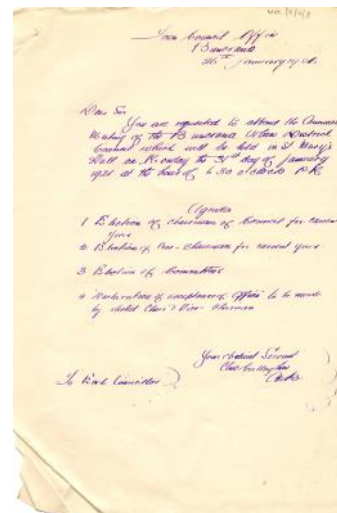 Town Council Office
Buncrana
January
Dear Sir
You are requested to attend the Annual
Meeting of the Buncrana Urban District
Council which will be held in St Mary's
Hall on Monday the 31st day of January
1921 at the hour of 6 30 o'clock P.M.
Agenda
1 Election of Chairman of Council for current
year
2 Election of Vice-Chairman for current year
3 Election of Committees
4 Declaration of acceptance of Office to be made
by elected Chair & Vice-Chairman
Your obedient Servant
Clerk
To Each Councillor